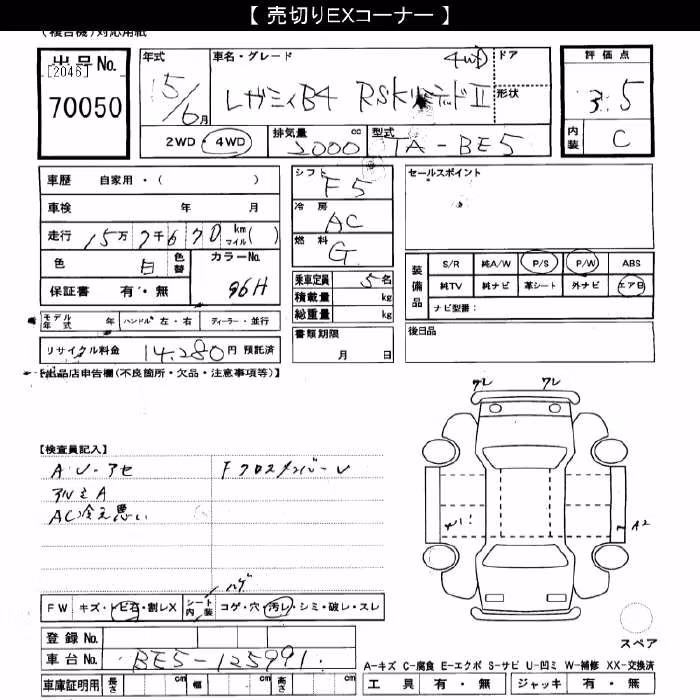 【 売切りEXコーナー 】
(複合機)対応用紙
出品 No.
[2046]
70050
年式
15/6月
車名・グレード
レガシィB4 RSKリミテッドⅡ
4WD
ドア
形状
評価点
3.5
内装
C
2WD・4WD
排気量 cc
2000
型式
TA-BE5
車歴 自家用・( )
車検 年 月
走行 15万7千670 km マイル( )
色 白 色替
カラーNo.
96H
保証書 有・無
モデル年式 年 ハンドル 左・右 ディーラー・並行
リサイクル料金 14,280円 預託済
シフト F5
冷房 AC
燃料 G
乗車定員 5名
積載量 kg
総重量 kg
書類期限
月 日
セールスポイント
装備品
S/R 純A/W P/S P/W ABS
純TV 純ナビ 革シート 外ナビ エアB
ナビ型番:
後日品
【出品店申告欄(不良箇所・欠品・注意事項等)】
【検査員記入】
AU-アセ Fクロスメンバーレ
アルミA
AC冷え悪い
ハゲ
FW キズ・トビ石・割レX シート内装 コゲ・穴・汚レ・シミ・破レ・スレ
登録 No.
車台 No. BE5-125991
車庫証明用 長さ cm 幅 cm 高さ cm
ワレ ワレ
A2
スペア
A-キズ C-腐食 E-エクボ S-サビ U-凹ミ W-補修 XX-交換済
工具 有・無 ジャッキ 有・無